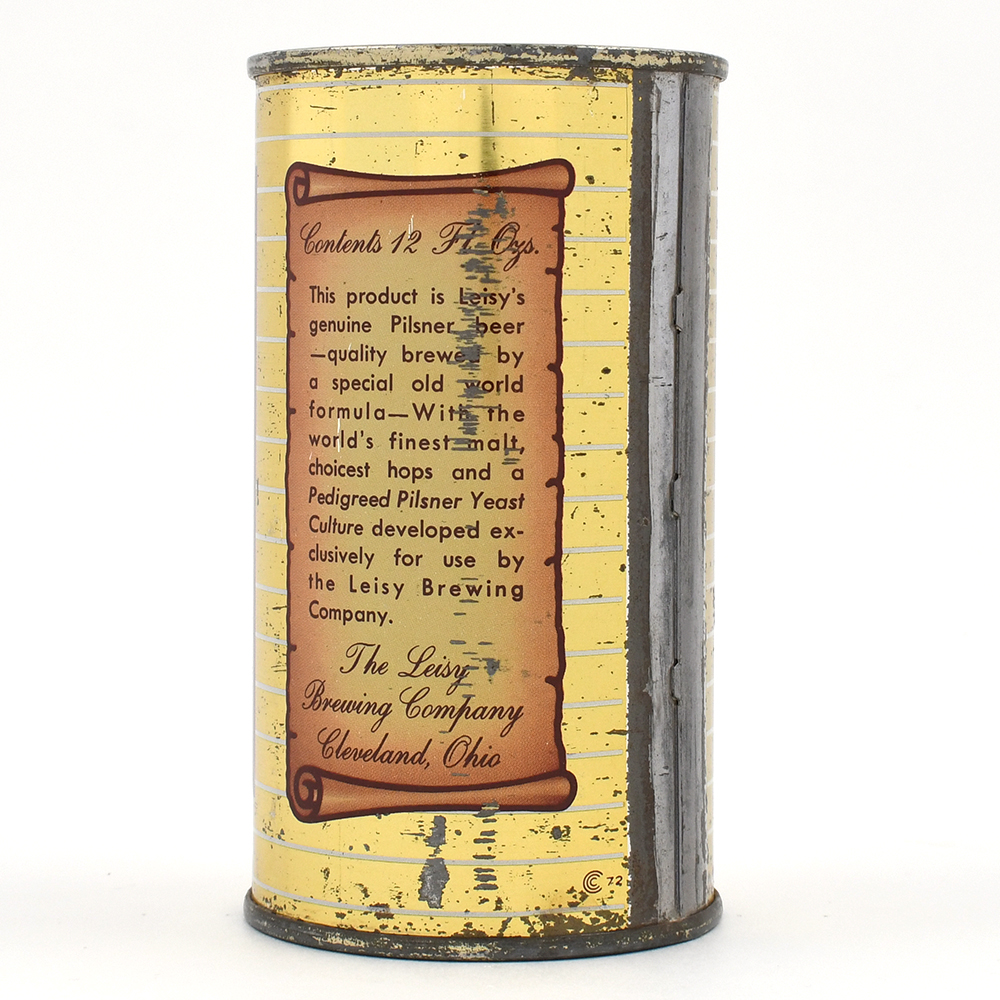 Contents 12 Fl. Ozs.
This product is Leisy's
genuine Pilsner beer
—quality brewed by
a special old world
formula—With the
world's finest malt,
choicest hops and a
Pedigreed Pilsner Yeast
Culture developed ex-
clusively for use by
the Leisy Brewing
Company.
The Leisy
Brewing Company
Cleveland, Ohio
CC 72